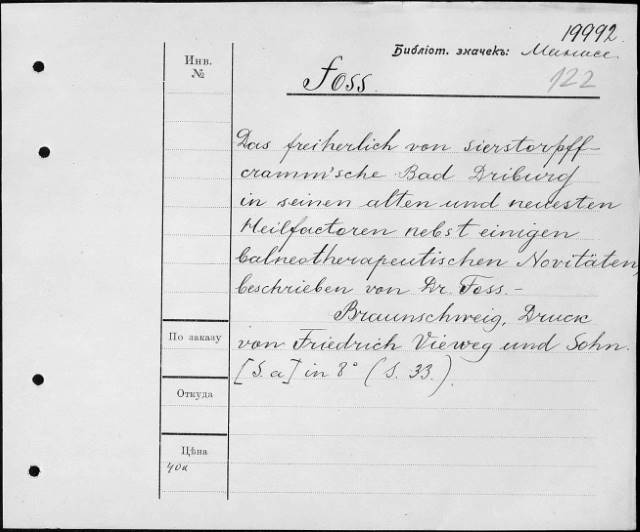 19992
Библіот. значекъ: Манасс.
122
Инв.
№
Foss.
Das freiherlich von Sierstorpff-
cramm'sche Bad Driburg
in seinen alten und neuesten
Heilfactoren nebst einigen
balneotherapeutischen Novitäten,
beschrieben von Dr. Foss.-
Braunschweig, Druck
von Friedrich Vieweg und Sohn.
[S. a] in 8° (S. 33.).
По заказу
Откуда
Цѣна
40к